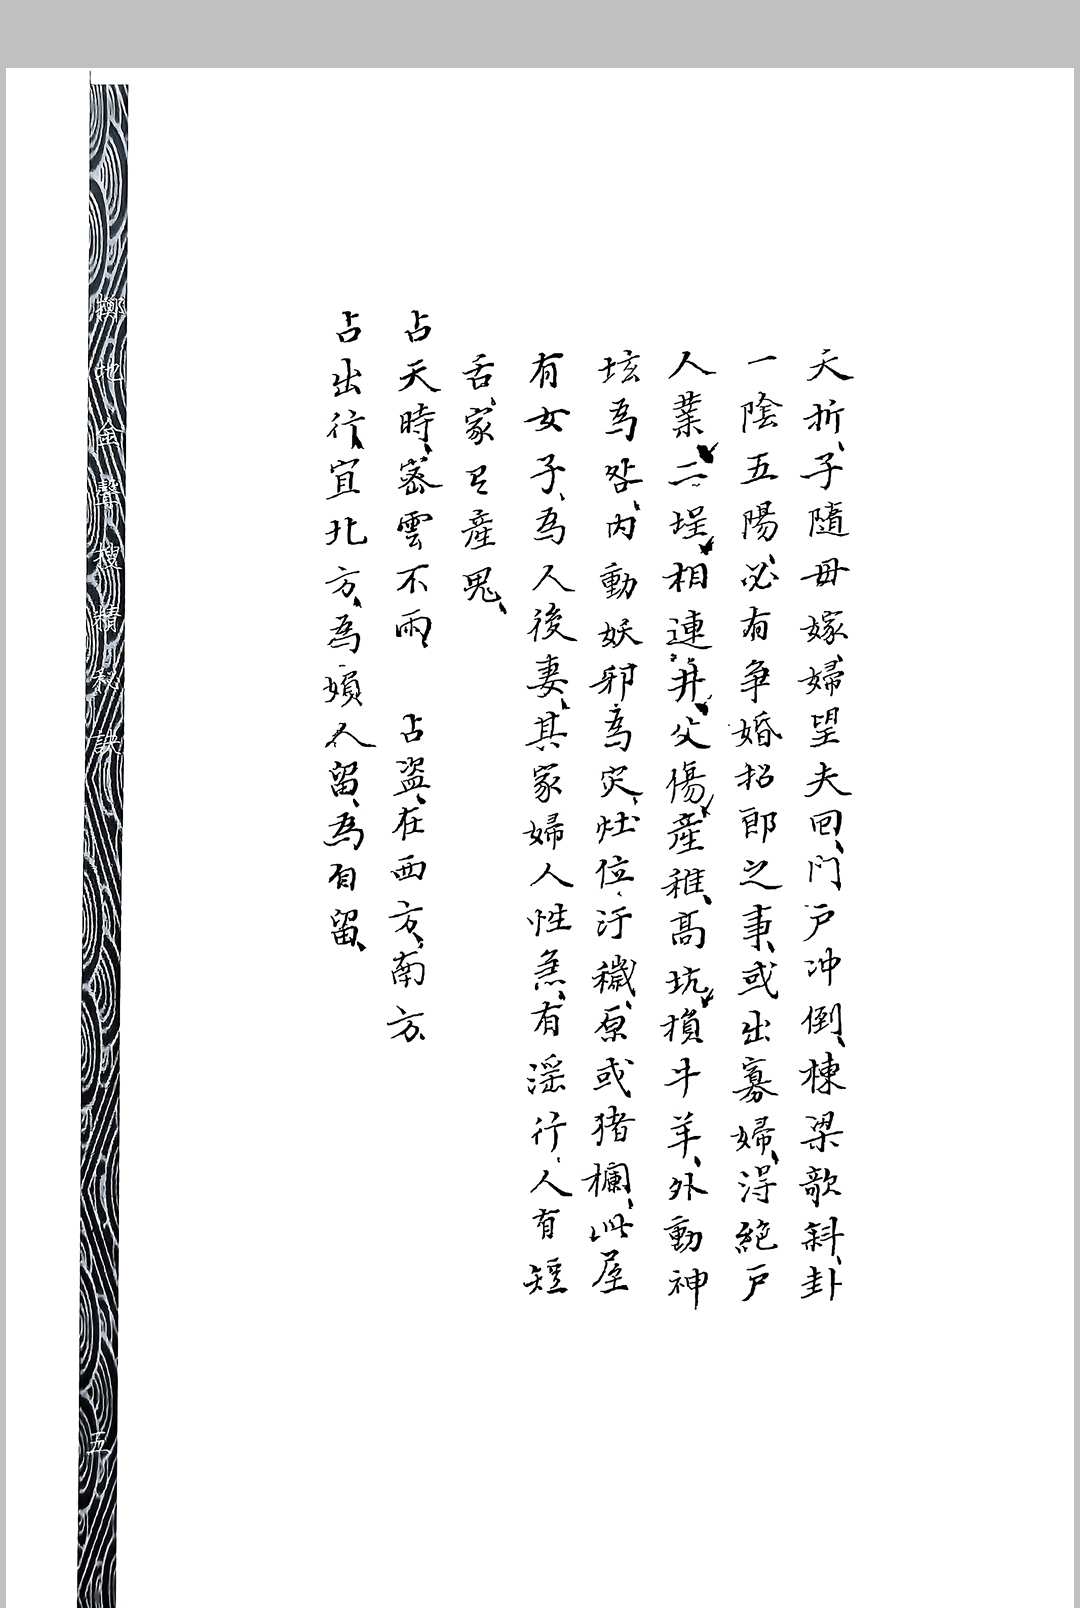 夭折、子隨母嫁、婦望夫回、門戸冲倒、棟梁歌斜、卦
一陰五陽、必有争婚招郎之事、或出寡婦、得絕戸
人業、二埕、相連、井、父傷、産稚、高坑、損牛羊、外動神
坛為咎、内動妖邪為灾、灶位、汙穢、原或猪欄、此屋
有女子、為人後妻、其家婦人性急、有淫行、人有短
舌、家有産鬼、
占天時、密雲不雨、　占盗、在西方、南方、
占出行、宜北方、為損人留、為自留、
擲地金聲搜精秘訣
五